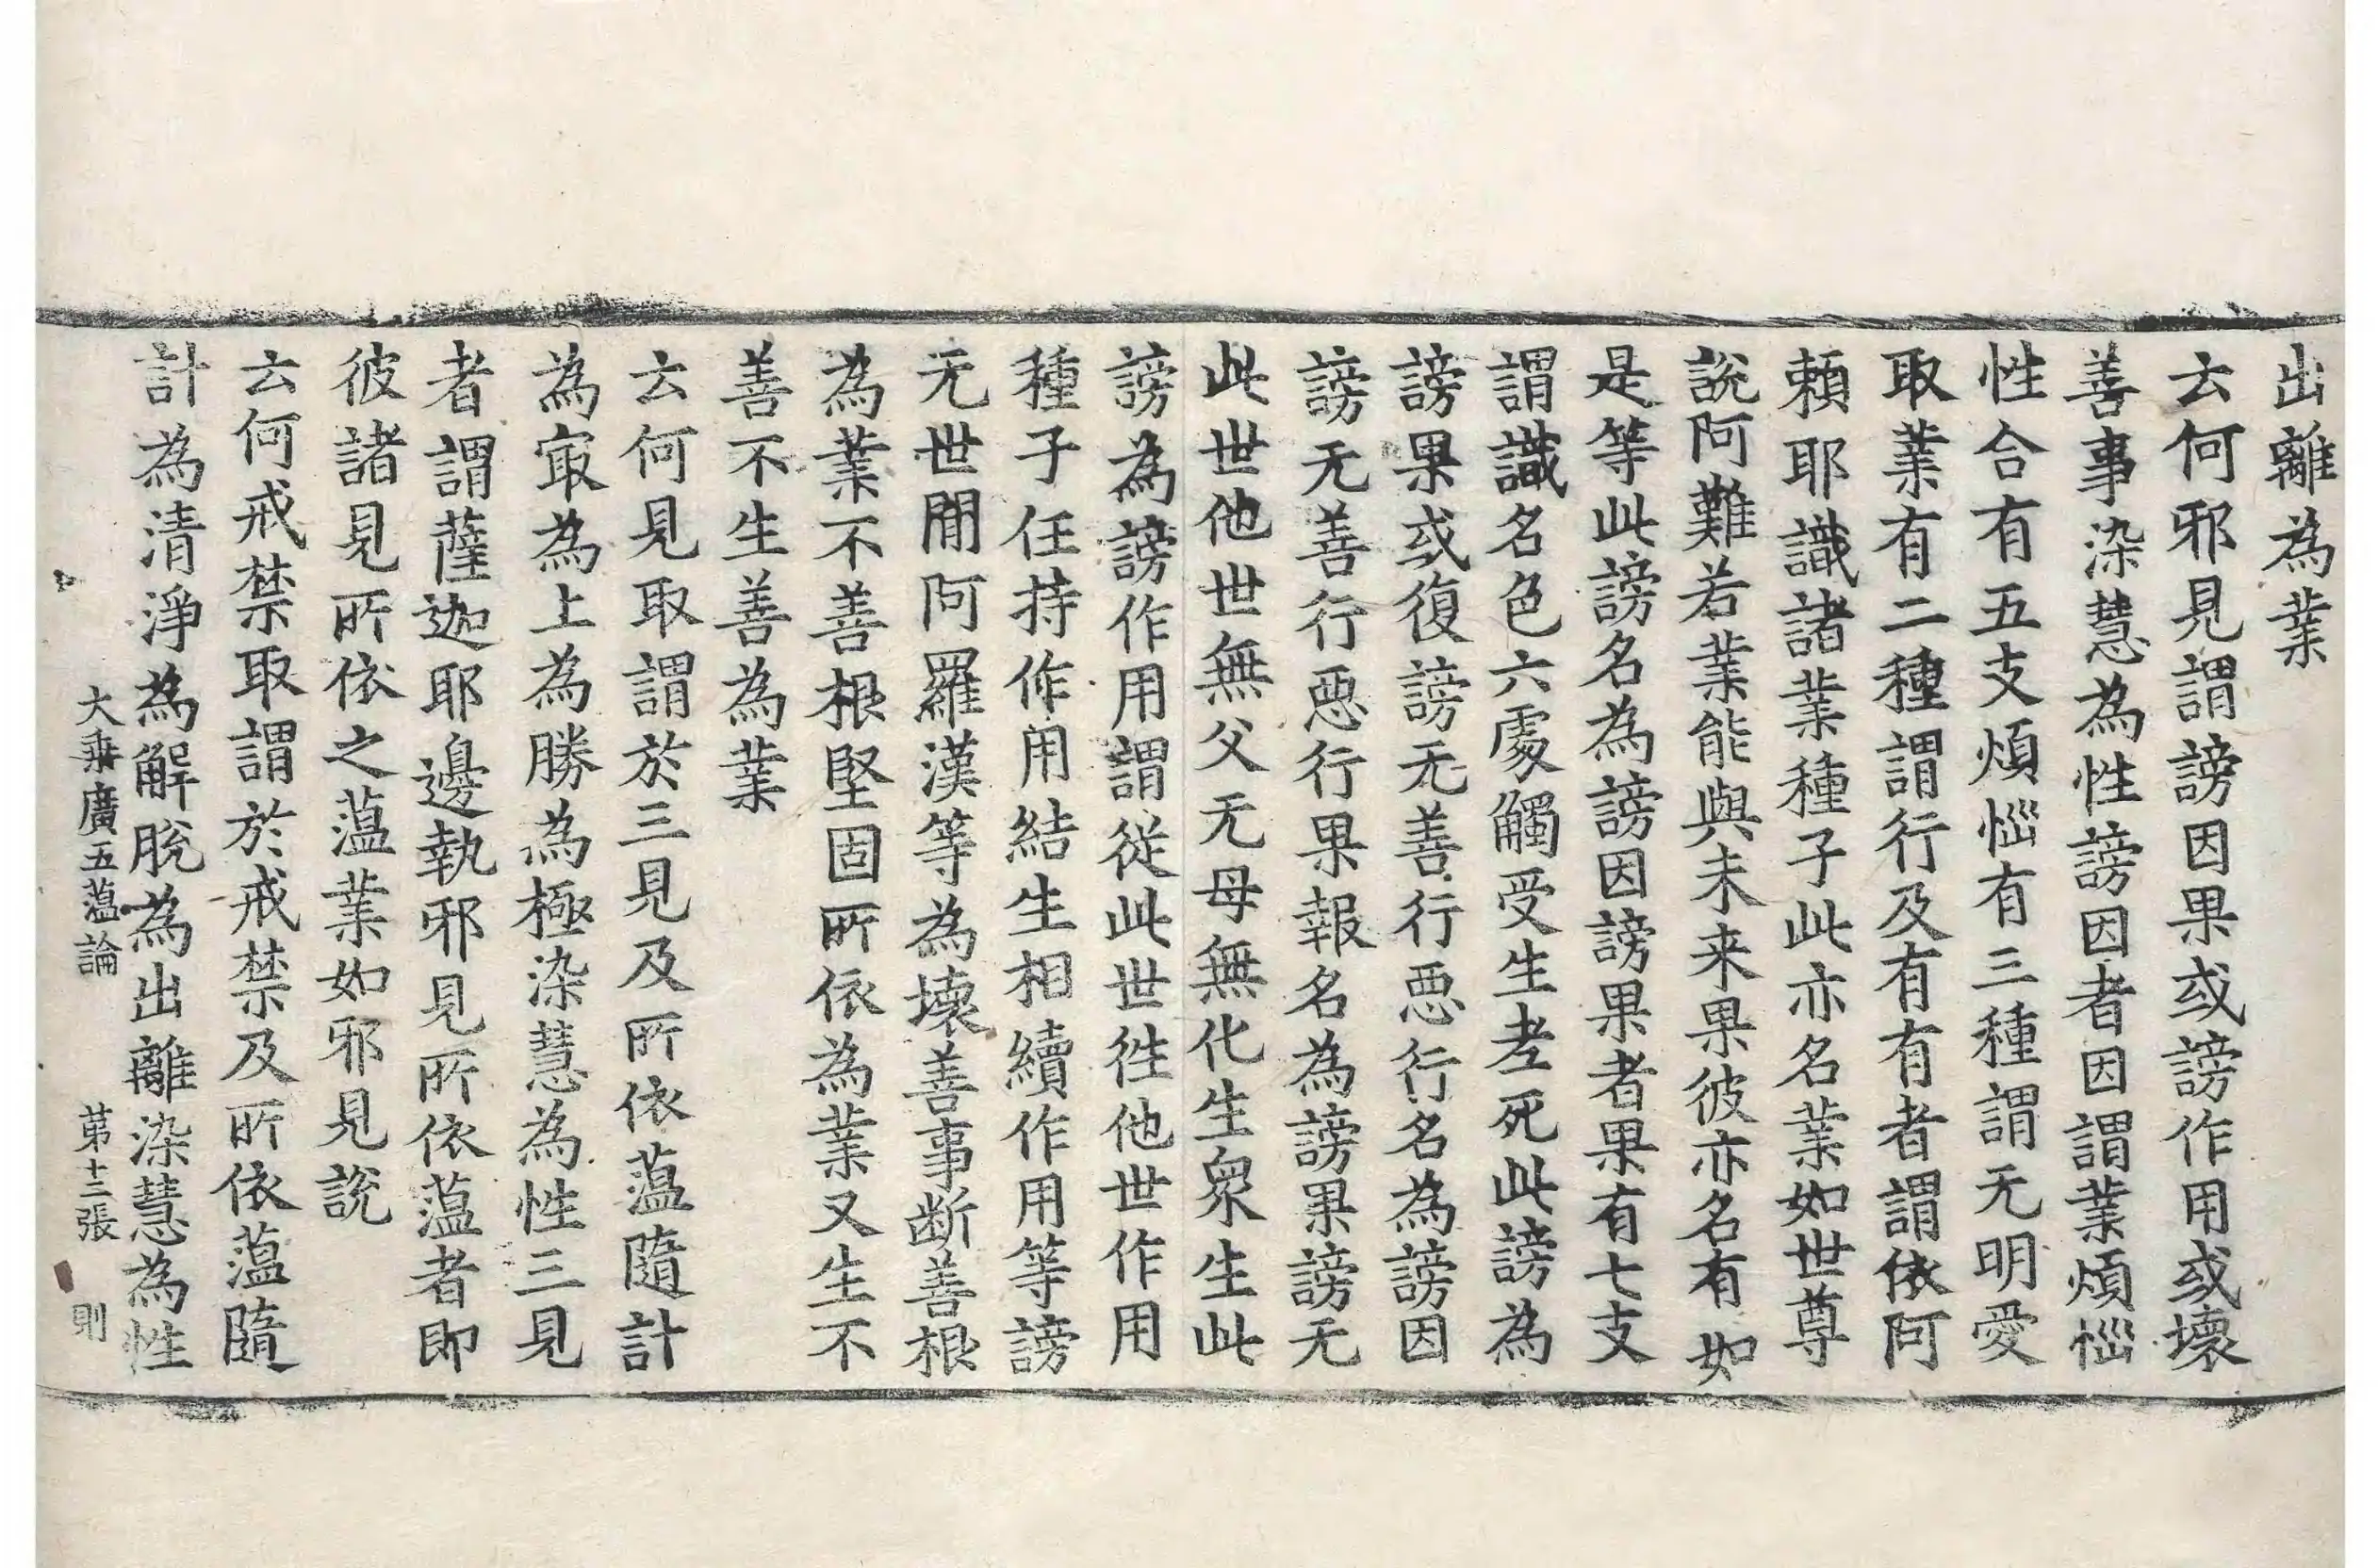 出離為業
云何邪見謂謗因果或謗作用或壞
善事染慧為性謗因者因謂業煩惱
性合有五支煩惱有三種謂无明愛
取業有二種謂行及有有者謂依阿
賴耶識諸業種子此亦名業如世尊
說阿難若業能與未来果彼亦名有如
是等此謗名為謗因謗果者果有七支
謂識名色六處觸受生老死此謗為
謗果或復謗无善行惡行名為謗因
謗无善行惡行果報名為謗果謗无
此世他世無父无母無化生眾生此
謗為謗作用謂從此世往他世作用
種子任持作用結生相續作用等謗
无世間阿羅漢等為壞善事断善根
為業不善根堅固所依為業又生不
善不生善為業
云何見取謂於三見及所依薀隨計
為㝡為上為勝為極染慧為性三見
者謂薩迦耶邊執邪見所依薀者即
彼諸見所依之薀業如邪見說
云何戒禁取謂於戒禁及所依薀隨
計為清淨為解脫為出離染慧為性
大乘廣五薀論 苐十三張 則